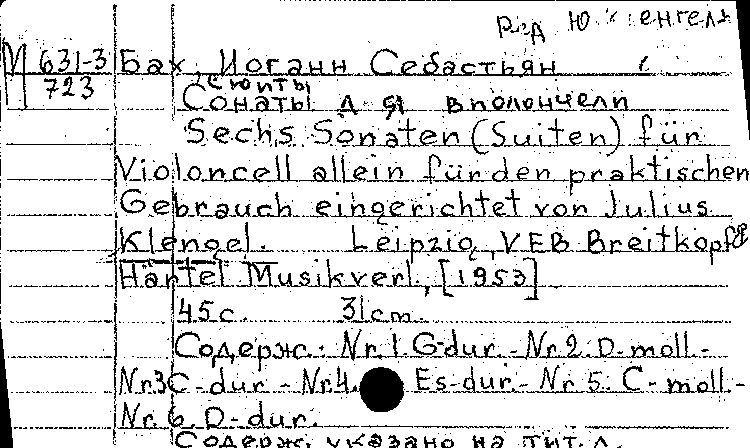 Ред. Ю. Кленгель
М 631-3 Бах, Иоганн Себастьян
723 Сюиты
Сонаты для виолончели
Sechs Sonaten (Suiten) für
Violoncell allein für den praktischen
Gebrauch eingerichtet von Julius
Klengel. Leipzig, VEB Breitkopf &
Härtel Musikverl., [1953]
45с. 31cm.
Содерж.: Nr.1. G-dur. - Nr.2. D-moll. -
Nr.3 C-dur. - Nr.4. Es-dur. - Nr.5. C-moll. -
Nr.6. D-dur.
Содерж. указано на тит. л.